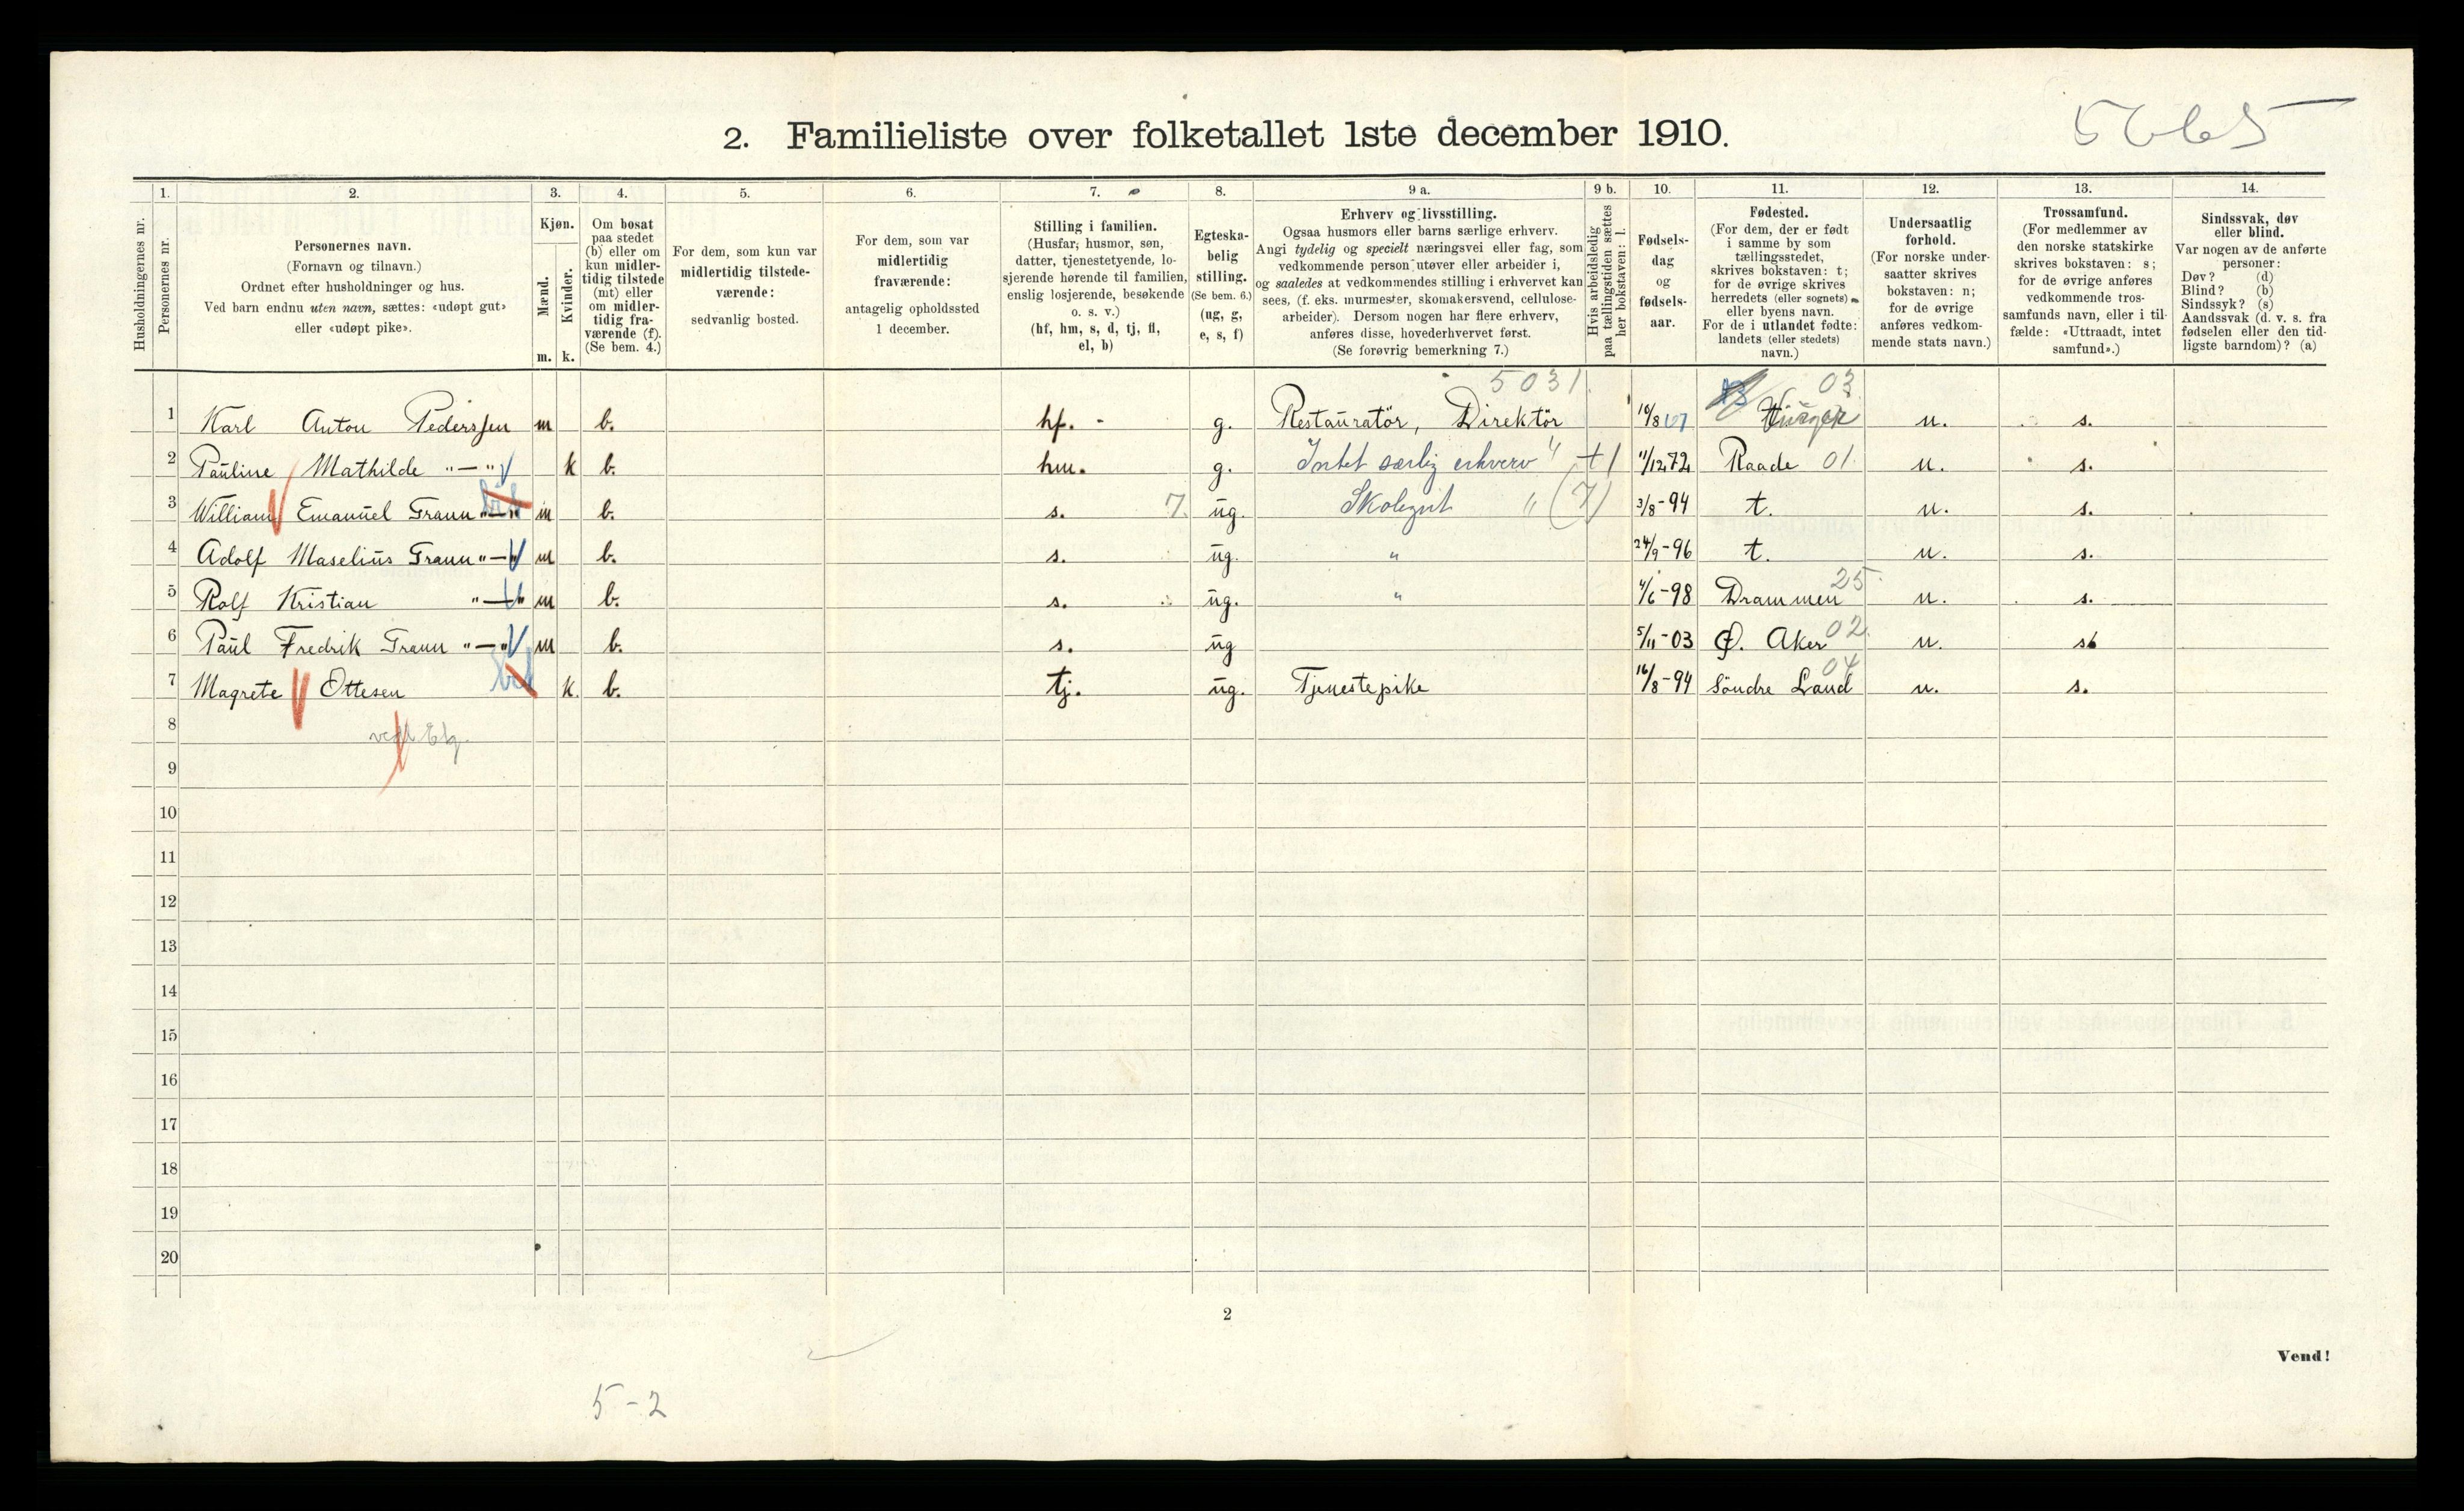 5665
2. Familieliste over folketallet 1ste december 1910.
Husholdningernes nr.
1. Personernes nr.
2. Personernes navn.
(Fornavn og tilnavn.)
Ordnet efter husholdninger og hus.
Ved barn endnu uten navn, sættes: «udøpt gut»
eller «udøpt pike».
3. Kjøn.
Mænd. m.
Kvinder. k.
4. Om bosat
paa stedet
(b) eller om
kun midler-
tidig tilstede
(mt) eller
om midler-
tidig fra-
værende (f).
(Se bem. 4.)
5. For dem, som kun var
midlertidig tilstede-
værende:
sedvanlig bosted.
6. For dem, som var
midlertidig
fraværende:
antagelig opholdssted
1 december.
7. Stilling i familien.
(Husfar, husmor, søn,
datter, tjenestetyende, lo-
sjerende hørende til familien,
enslig losjerende, besøkende
o. s. v.)
(hf, hm, s, d, tj, fl,
el, b)
8. Egteska-
belig
stilling.
(Se bem. 6.)
(ug, g,
e, s, f)
9 a. Erhverv og livsstilling.
Ogsaa husmors eller barns særlige erhverv.
Angi tydelig og specielt næringsvei eller fag, som
vedkommende person utøver eller arbeider i,
og saaledes at vedkommendes stilling i erhvervet kan
sees, (f. eks. murmester, skomakersvend, cellulose-
arbeider). Dersom nogen har flere erhverv,
anføres disse, hovederhvervet først.
(Se forøvrig bemerkning 7.)
9 b. Hvis arbeidsledig
paa tællingstiden sættes
her bokstaven: l.
10. Fødsels-
dag
og
fødsels-
aar.
11. Fødested.
(For dem, der er født
i samme by som
tællingsstedet,
skrives bokstaven: t;
for de øvrige skrives
herredets (eller sognets)
eller byens navn.
For de i utlandet fødte:
landets (eller stedets)
navn.)
12. Undersaatlig
forhold.
(For norske under-
saatter skrives
bokstaven: n;
for de øvrige
anføres vedkom-
mende stats navn.)
13. Trossamfund.
(For medlemmer av
den norske statskirke
skrives bokstaven: s;
for de øvrige anføres
vedkommende tros-
samfunds navn, eller i til-
fælde: «Uttraadt, intet
samfund».)
14. Sindssvak, døv
eller blind.
Var nogen av de anførte
personer:
Døv? (d)
Blind? (b)
Sindssyk? (s)
Aandssvak (d. v. s. fra
fødselen eller den tid-
ligste barndom)? (a)
5031 03
1 Karl Anton Pederssen m b. hf. - g. Restauratör, Direktör n. s.
2 Pauline Mathilde "—" k b. hm. g. Intet særlig erhverv " t 1 11/12 72 Raade 01 n. s.
3 William Emanuel Grann "—" m b. s. 7. ug. Skolegut " (7) 3/8-94 t. n. s.
4 Adolf Maselius Grann "—" m b. s. ug. " 24/9-96 t. n. s.
5 Rolf Kristian "—" m b. s. ug. " 4/6-98 Drammen 25 n. s.
6 Paul Fredrik Grann "—" m b. s. ug 5/11-03 Ø. Aker 02 n. s
7 Magrete Ottesen k. b. tj. ug. Tjenestepike 16/8-94 Söndre Land 04 n. s.
8
9
10
11
12
13
14
15
16
17
18
19
20
2
Vend!
5-2